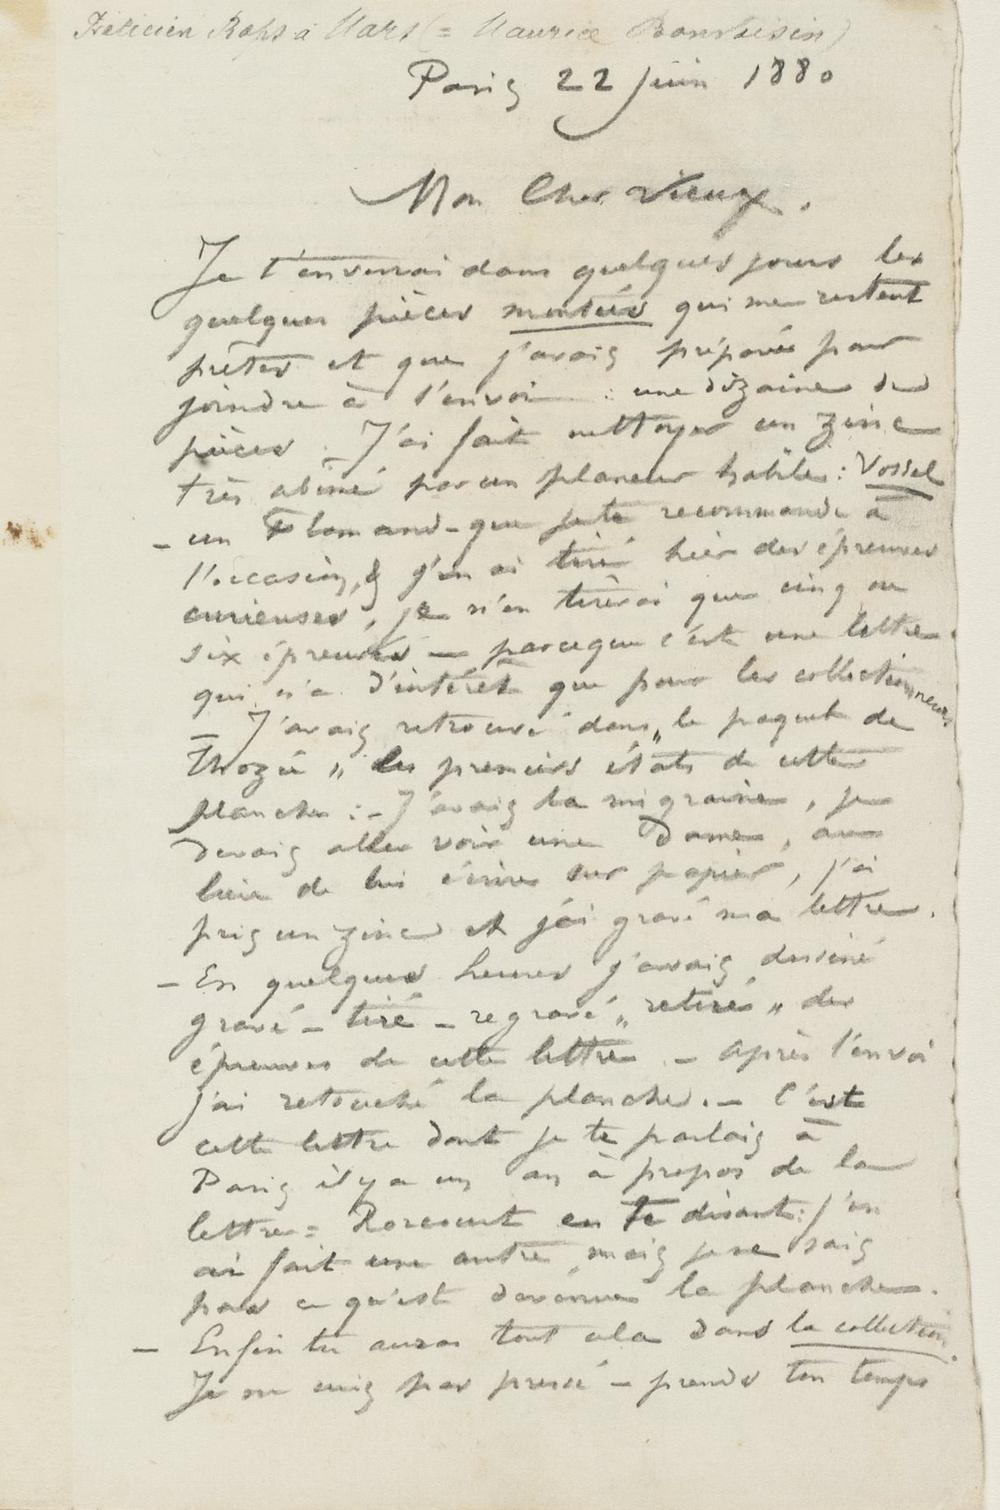 Félicien Rops à Mars (= Maurice Bonvoisin)
Paris 22 juin 1880
Mon Cher Vieux.
Je t'enverrai dans quelques jours les
quelques pièces montées qui me restent
prêtes et que j'avais préparées pour
joindre à l'envoi : une dizaine de
pièces. J'ai fait nettoyer un zinc
très abîmé par un planeur habile : Vossel
– un Flamand – que je te recommande à
l'occasion, & j'en ai tiré hier des épreuves
curieuses, je n'en tirerai que cinq ou
six épreuves — parceque c'est une lettre
qui n'a d'intérêt que pour les collectionneurs
– J'avais retrouvé dans „le paquet de
Thozée„ les premiers états de cette
planche : – J'avais la migraine, je
devais aller voir une Dame, au
lieu de lui écrire sur papier, j'ai
pris un zinc et j'ai gravé ma lettre.
– En quelques heures j'avais dessiné
gravé – tiré – regravé „retiré„ des
épreuves de cette lettre – après l'envoi
j'ai retouché la planche. – C'est
cette lettre dont je te parlais à
Paris il y a un an à propos de la
lettre = en te disant : j'en
ai fait une autre mais je ne sais
pas ce qu'est devenue la planche.
– Enfin tu auras tout cela dans la collection.
Je ne suis pas pressé – prends ton temps